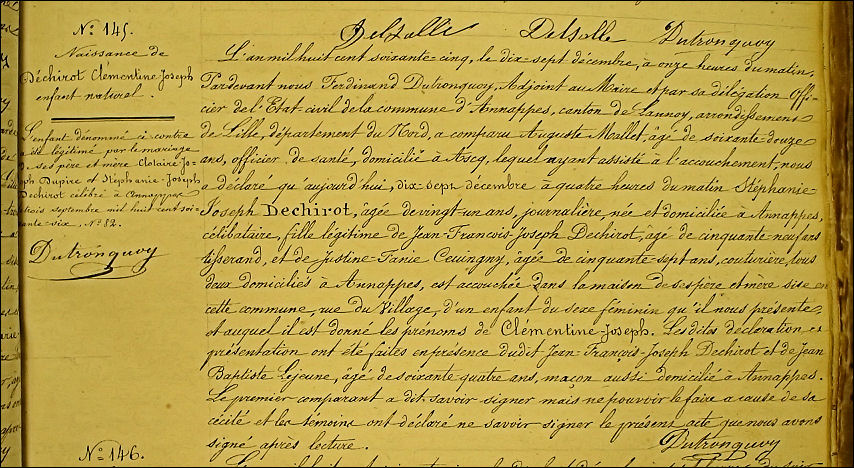 Nº 145.
Naissance de
Déchirot Clémentine-Joseph
enfant naturel.
L'enfant dénommé ci contre
a été légitimé par le mariage
de ses père et mère Clotaire Jo-
seph Dupire et Stéphanie-Joseph
Dechirot célébré à Annappes
le trois septembre mil huit cent soi-
xante-six, Nº 82.
Dutronquoy
Delsalle Delsalle Dutronquoy
L'an mil huit cent soixante-cinq, le dix-sept décembre, à onze heures du matin,
Pardevant nous Ferdinand Dutronquoy, Adjoint au Maire et par sa délégation Offi-
cier de l'Etat-civil de la commune d'Annappes, canton de Lannoy, arrondissement
de Lille, département du Nord, a comparu Auguste Mallet, âgé de soixante-douze
ans, officier de santé, domicilié à Ascq, lequel ayant assisté à l'accouchement, nous
a déclaré qu'aujourd'hui, dix-sept décembre à quatre heures du matin Stéphanie-
Joseph Dechirot, âgée de vingt-un ans, journalière, née et domiciliée à Annappes,
célibataire, fille légitime de Jean-François-Joseph Dechirot, âgé de cinquante-neuf ans
tisserand, et de Justine- âgée de cinquante-sept ans, couturière, tous
deux domiciliés à Annappes, est accouchée dans la maison de ses père et mère sise en
cette commune, rue du Village, d'un enfant du sexe féminin qu'il nous présente,
et auquel il est donné les prénoms de Clémentine-Joseph. Les dites déclaration et
présentation ont été faites en présence dudit Jean-François-Joseph Dechirot et de Jean
Baptiste Lejeune, âgé de soixante quatre ans, maçon aussi domicilié à Annappes.
Le premier comparant a dit savoir signer mais ne pouvoir le faire a cause de sa
cécité et les témoins ont déclaré ne savoir signer le présent acte que nous avons
signé après lecture. Dutronquoy
Nº 146.